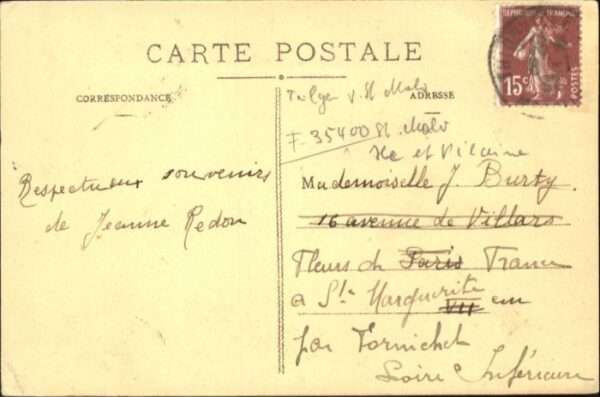 REPUBLIQUE FRANCAISE
15c
POSTES
CARTE POSTALE
CORRESPONDANCE
ADRESSE
St Malo
F. 35400 St. Malo
Ile et Vilaine
Respectueux souvenirs
de Jeanne Redon
Mademoiselle J. Burty.
16 avenue de Villars
Fleurs de Paris France
a Ste Marguerite VII en
par Pornichet
Loire Inférieure